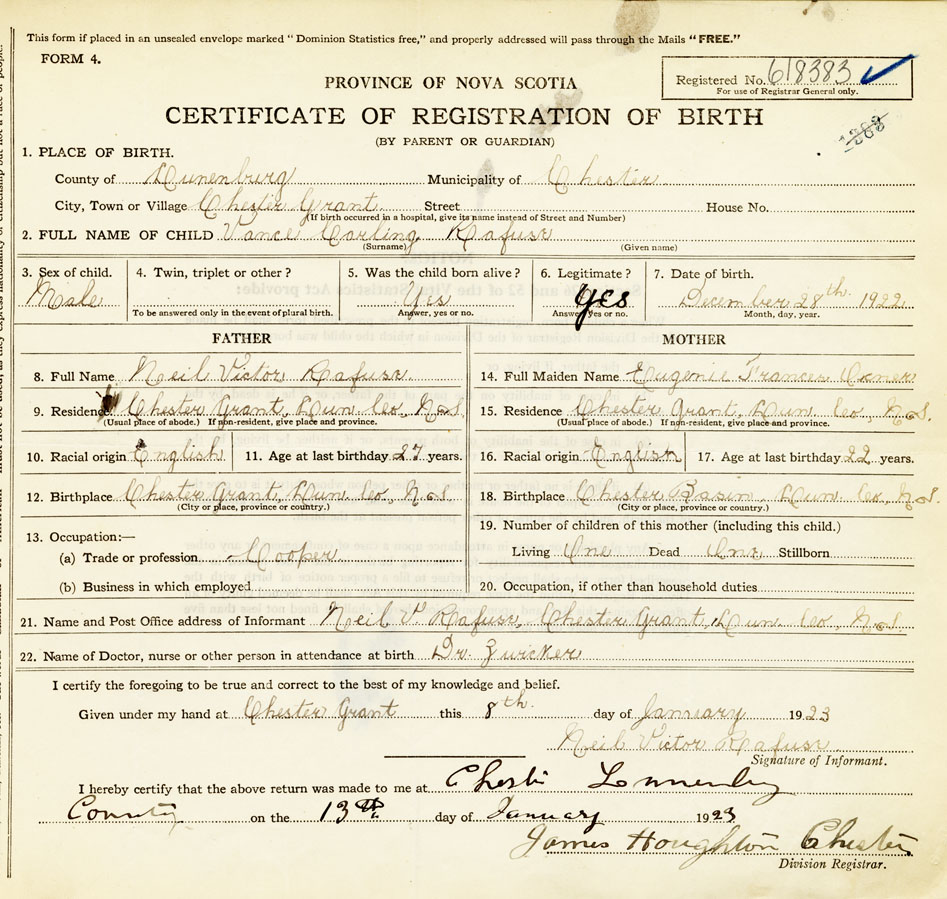 This form if placed in an unsealed envelope marked "Dominion Statistics free," and properly addressed will pass through the Mails "FREE."
FORM 4.
Registered No. 618383
For use of Registrar General only.
PROVINCE OF NOVA SCOTIA
CERTIFICATE OF REGISTRATION OF BIRTH
(BY PARENT OR GUARDIAN)
1. PLACE OF BIRTH.
County of Lunenburg Municipality of Chester
City, Town or Village Chester Grant Street House No.
(If birth occurred in a hospital, give its name instead of Street and Number)
2. FULL NAME OF CHILD Vance Carling Rafuse
(Surname) (Given name)
3. Sex of child. 4. Twin, triplet or other? 5. Was the child born alive? 6. Legitimate? 7. Date of birth.
Male Yes Yes December 28th 1922
To be answered only in the event of plural birth. Answer, yes or no. Answer, yes or no. Month, day, year.
FATHER MOTHER
8. Full Name Neil Victor Rafuse 14. Full Maiden Name Eugenie Frances
9. Residence Chester Grant, Lun. Co., N.S. 15. Residence Chester Grant, Lun. Co., N.S.
(Usual place of abode.) If non-resident, give place and province. (Usual place of abode.) If non-resident, give place and province.
10. Racial origin English 11. Age at last birthday 27 years. 16. Racial origin English 17. Age at last birthday 22 years.
12. Birthplace Chester Grant, Lun. Co., N.S. 18. Birthplace Chester Basin, Lun. Co., N.S.
(City or place, province or country.) (City or place, province or country.)
13. Occupation:— 19. Number of children of this mother (including this child.)
(a) Trade or profession Cooper Living One Dead One Stillborn
(b) Business in which employed 20. Occupation, if other than household duties
21. Name and Post Office address of Informant Neil V. Rafuse, Chester Grant, Lun. Co., N.S.
22. Name of Doctor, nurse or other person in attendance at birth Dr. Zwicker
I certify the foregoing to be true and correct to the best of my knowledge and belief.
Given under my hand at Chester Grant this 8th day of January 1923
Neil Victor Rafuse
Signature of Informant.
I hereby certify that the above return was made to me at Chester Lunenburg
County on the 13th day of January 1923
James Houghton Chester
Division Registrar.